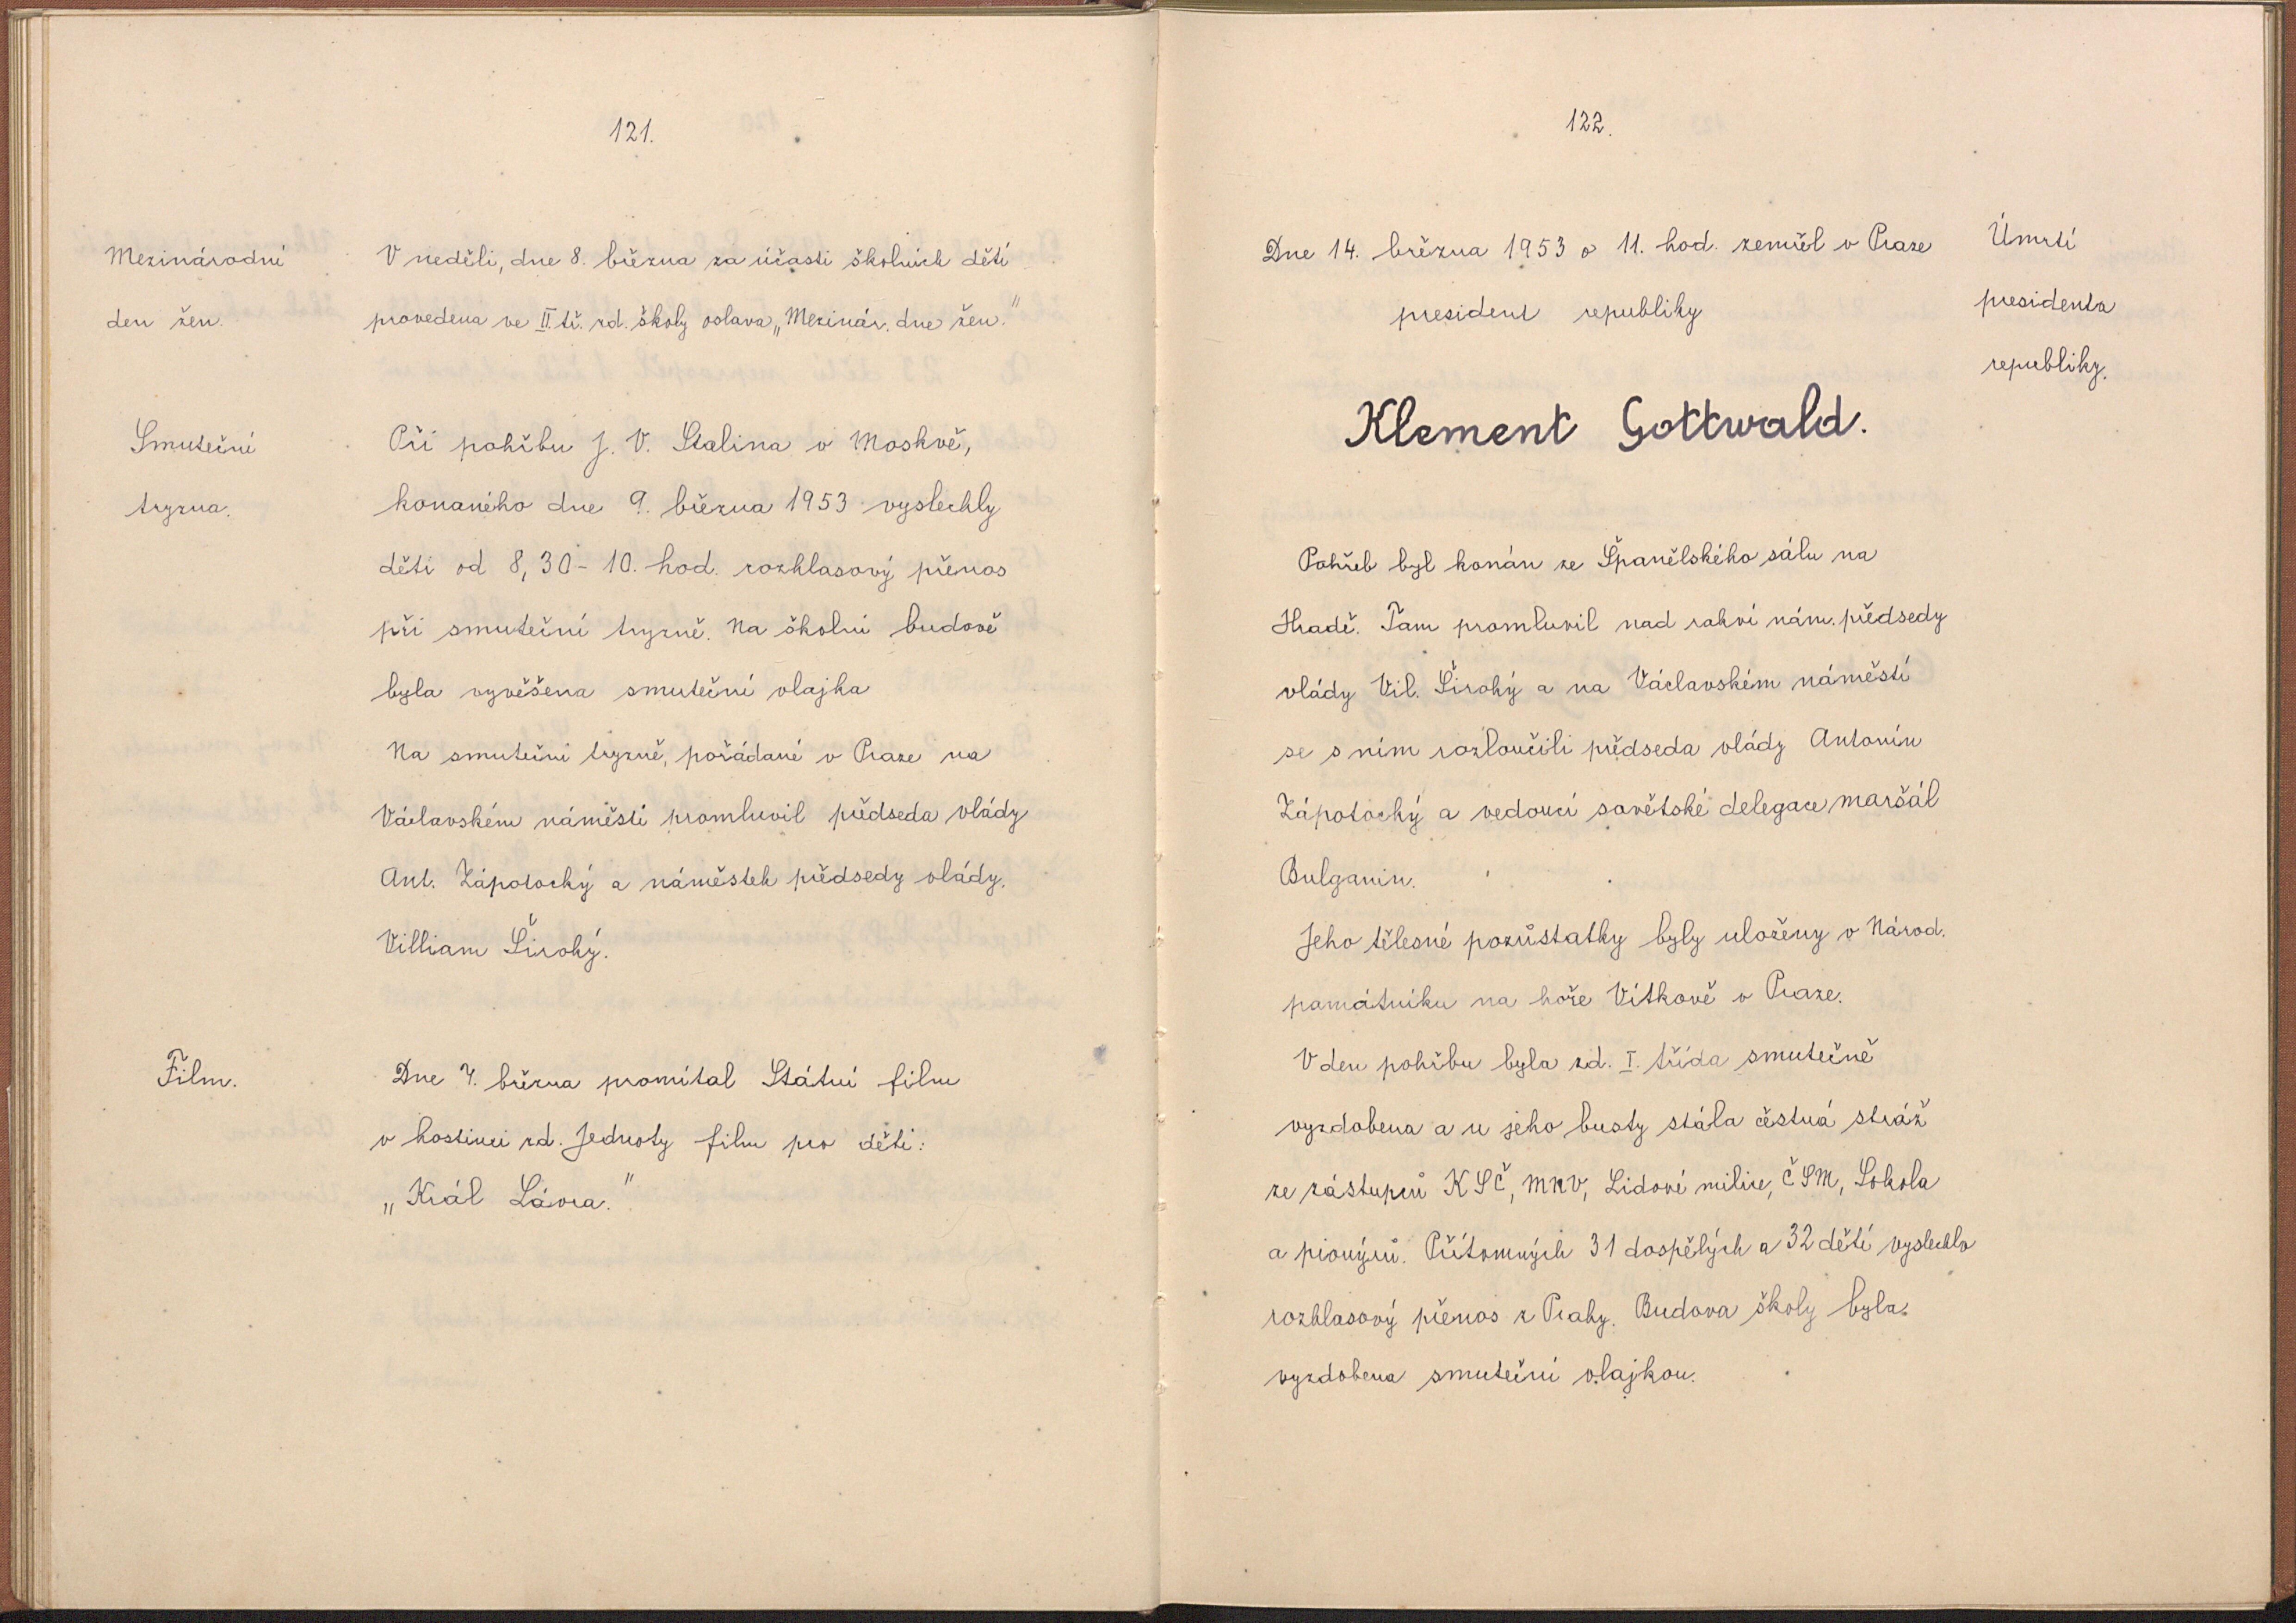 121.
Mezinárodní
den žen.
V neděli, dne 8. března za účasti školních dětí
provedena ve II. tř. zd. školy oslava „Mezinár. dne žen."
Smuteční
tryzna.
Při pohřbu J. V. Stalina v Moskvě,
konaného dne 9. března 1953 vyslechly
děti od 8,30 - 10. hod. rozhlasový přenos
při smuteční tryzně. Na školní budově
byla vyvěšena smuteční vlajka
Na smuteční tryzně, pořádané v Praze na
Václavském náměstí promluvil předseda vlády
Ant. Zápotocký a náměstek předsedy vlády.
Villiam Široký.
Film.
Dne 4. března promítal Státní film
v hostinci zd. Jednoty film pro děti:
„Král Lávra."
122.
Dne 14. března 1953 o 11. hod. zemřel v Praze
president republiky
Úmrtí
presidenta
republiky.
Klement Gottwald.
Pohřeb byl konán ze Španělského sálu na
Hradě. Tam promluvil nad rakví nám. předsedy
vlády Vil. Široký a na Václavském náměstí
se s ním rozloučili předseda vlády Antonín
Zápotocký a vedoucí sovětské delegace maršál
Bulganin.
Jeho tělesné pozůstatky byly uloženy v Národ.
památníku na hoře Vítkově v Praze.
V den pohřbu byla zd. I. třída smutečně
vyzdobena a u jeho busty stála čestná stráž
ze zástupců KSČ, MNV, Lidové milice, ČSM, Sokola
a pionýrů. Přítomných 31 dospělých a 32 dětí vyslechlo
rozhlasový přenos z Prahy. Budova školy byla
vyzdobena smuteční vlajkou.